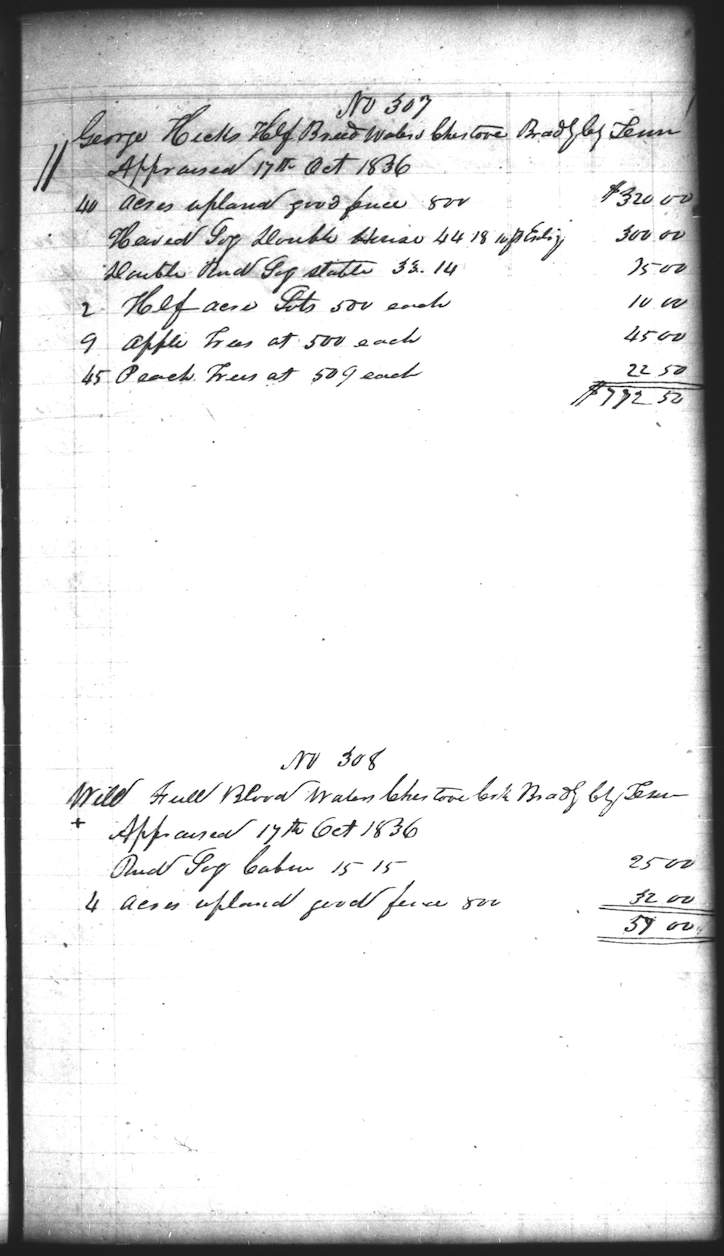 No 307
George Hicks Hlf Breed Waters Chestooe Bradly Cty Tenn
Appraised 17th Oct 1836
40 acres upland good fence 800 $320 00
Hewed Log Double House 44 18
300 00
Double Rnd Log stable 33. 14 75 00
2 Half acre Lots 500 each 10 00
9 apple Trees at 500 each 45 00
45 Peach Trees at 50 ₵ each 22 50
$772 50
No 308
Wild Full Blood Waters Chestooe Crk Bradly Cty Tenn
+ Appraised 17th Oct 1836
Rnd Log Cabin 15 15 25 00
4 acres upland good fence 800 32 00
57 00